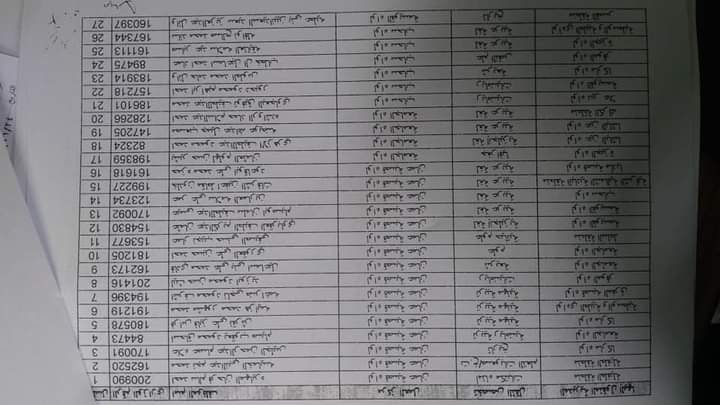 تسل الرقم الوزاري إسم الموظف مركز العمل تخصص النقل المديرية المنقول إليها
1 200990 احمد سالم فرحان المهايره لواء قصبة عمان أمناء مكتبات منطقة الطفيلة
2 162520 محمد نجم عبدالنبي الخمايسه لواء قصبة عمان ت.خ/صعوبات التعلم منطقة الطفيلة
3 170091 علاء عصام عبدالرحمن الجليس لواء قصبة عمان تاريخ لواء ماركا
4 84473 اسحاق محمود يعقوب صيام لواء قصبة عمان تربية رياضية لواء الجامعة
5 180578 فراس فايز علي نقرش لواء قصبة عمان تربية مهنية لواء ماركا
6 191219 محمد مشهور محمد هزايمه لواء قصبة عمان تربية مهنية لواءي الطيبة والوسطية
7 194396 اشرف محمود ناجي ضراغمه لواء قصبة عمان تربية مهنية لواء قصبه المفرق
8 201416 ليث حسن محمود ابوزيد لواء قصبة عمان رياضيات لواء الموقر
9 162173 فادي محمد علي بني اسماعيل لواء قصبة عمان شريعة لواء الجامعة
10 181205 احمد حسين علي العقوري لواء قصبة عمان علوم لواء الجامعة
11 153677 عمار نجيب حسني الصيفي لواء قصبة عمان علوم حياتية منطقة السلط
12 154830 عثمان عبدالكريم لطيف العقرباوي لواء قصبة عمان لغة إنجليزية لواء القويسمة
13 170092 عيسى عبداللطيف سلمان ابوصيام لواء قصبة عمان لغة عربية لواء القويسمة
14 123734 عمر علي سلامه العمارين لواء قصبة عمان لغة عربية لواء سحاب
15 199227 خلدون مقاط اعفين الشرفات لواء قصبة عمان لغة عربية منطقة البادية الشمالية الشرقية
16 161618 حمزه محمد علي ابوقاعود لواء قصبة عمان لغة عربية لواء قصبة مادبا
17 198359 بشير حسن لهلوم العثمان لواء الجامعة جغرافيا لواء الجيزة
18 82324 احمد محمود عبداللطيف الازهري لواء الجامعة لغة إنجليزية لواء عين الباشا
19 147205 مصعب جميل عبدالله عويضه لواء الجامعة لغة عربية لواء عين الباشا
20 128266 محمد عبدالسلام حماد الرواشده لواء الجامعة لغة عربية منطقة الكرك
21 186101 محمد عبداللطيف توفيق البعجاوي لواء سحاب رياضيات لواء دير علا
22 157218 احمد ابراهيم محمود دحبور لواء سحاب رياضيات لواء القويسمة
23 183914 وائل حامد محمد الطوس لواء سحاب شريعة لواء ماركا
24 89475 عماد احمد اسماعيل ال خطاب لواء سحاب علم النفس لواء الموقر
25 161113 صابر عيد سلامه العثايقه لواء سحاب لغة عربية لواء الجيزة
26 167344 سائد محمد صالح نوافله لواء سحاب لغة عربية لواءي الطيبة والوسطية
27 160397 وائل عبدالعزيز سعيد السعيدانيين بني عطيه لواء القويسمة تاريخ منطقة القصر